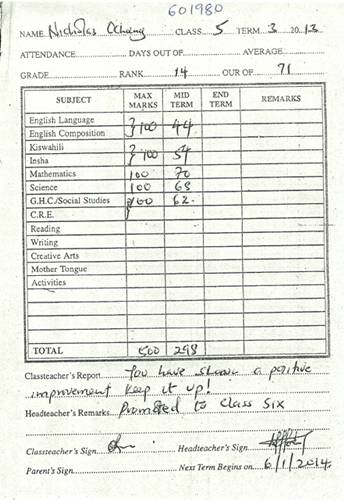 601980
NAME Nicholas Ochieng CLASS 5 TERM 3 2013
ATTENDANCE DAYS OUT OF AVERAGE
GRADE RANK 14 OUR OF 71
SUBJECT MAX MARKS MID TERM END TERM REMARKS
English Language
English Composition } 100 44
Kiswahili
Insha } 100 54
Mathematics 100 70
Science 100 68
G.H.C./Social Studies 100 62
C.R.E.
Reading
Writing
Creative Arts
Mother Tongue
Activities
TOTAL 500 298
Classteacher's Report You have shown a positive
improvement keep it up!
Headteacher's Remarks Promoted to Class Six
Classteacher's Sign Headteacher's Sign
Parent's Sign Next Term Begins on 6/1/2014